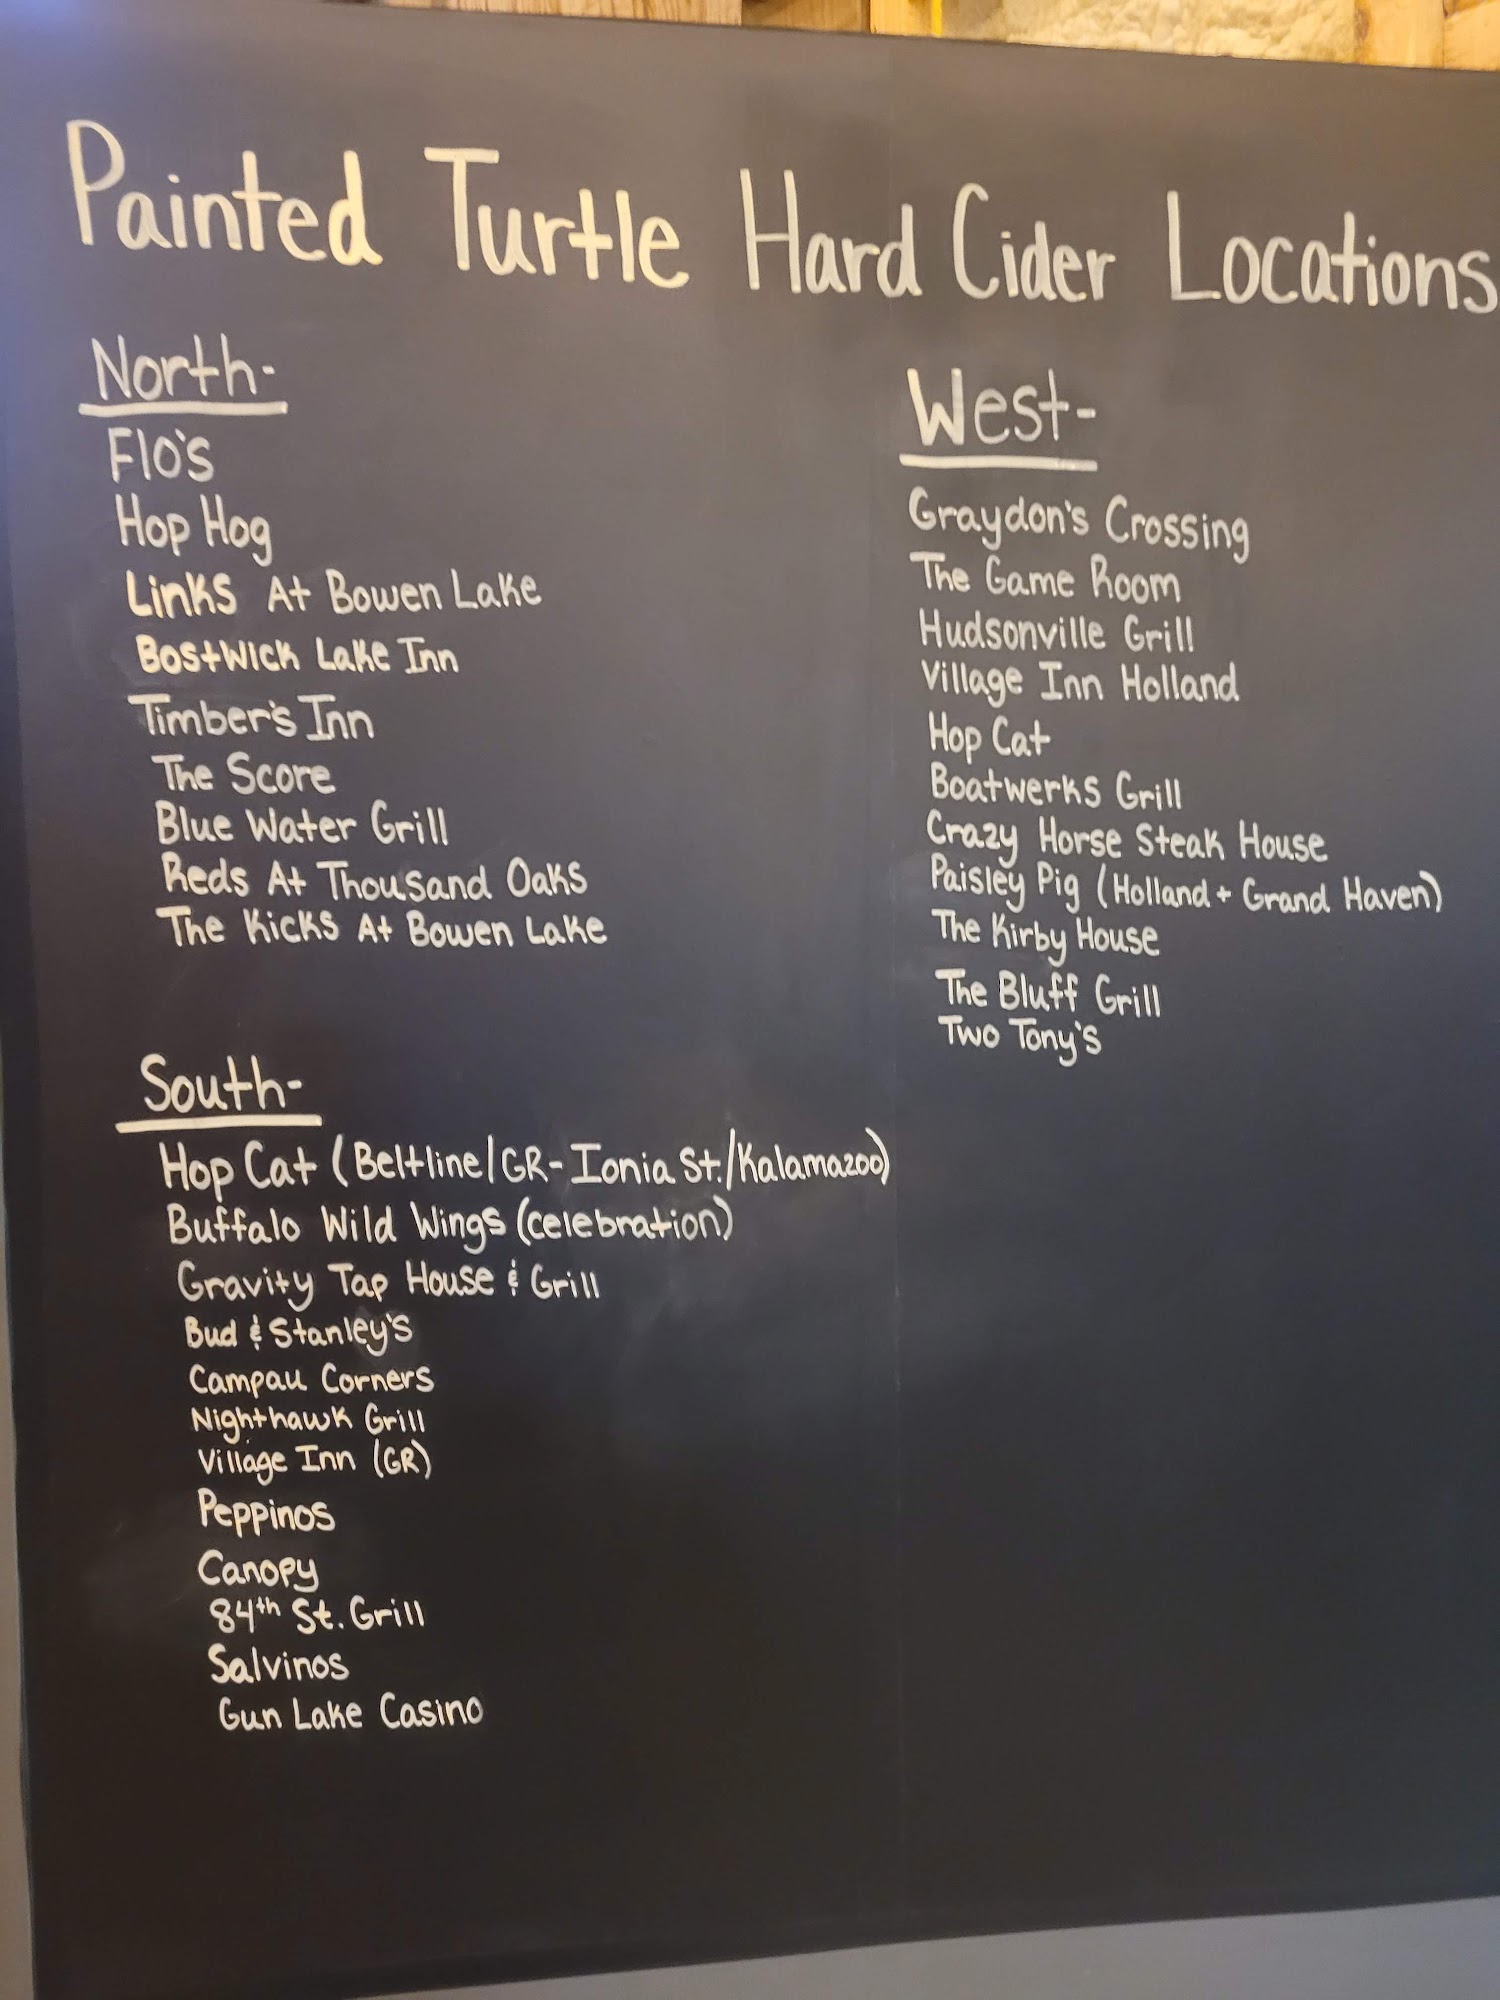 Painted Turtle Hard Cider Locations
North-
Flo's
Hop Hog
Links At Bowen Lake
Bostwick Lake Inn
Timber's Inn
The Score
Blue Water Grill
Reds At Thousand Oaks
The Kicks At Bowen Lake
South-
Hop Cat (Beltline/GR-Ionia St./Kalamazoo)
Buffalo Wild Wings (celebration)
Gravity Tap House & Grill
Bud & Stanley's
Campau Corners
Nighthawk Grill
Village Inn (GR)
Peppinos
Canopy
84th St. Grill
Salvinos
Gun Lake Casino
West-
Graydon's Crossing
The Game Room
Hudsonville Grill
Village Inn Holland
Hop Cat
Boatwerks Grill
Crazy Horse Steak House
Paisley Pig (Holland + Grand Haven)
The Kirby House
The Bluff Grill
Two Tony's